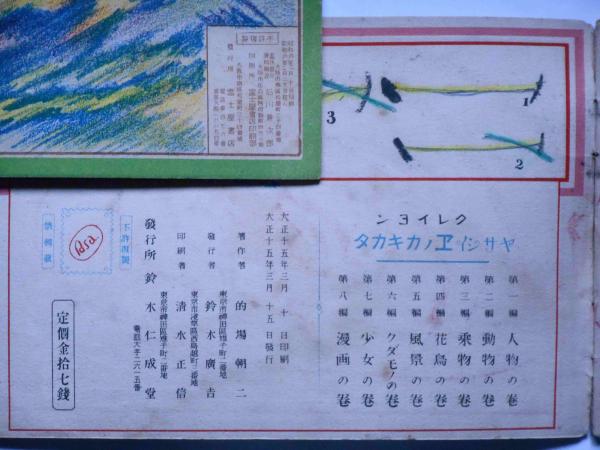 ンヨイレク
タカキカノヱイシサヤ
第一編 人物の巻
第二編 動物の巻
第三編 乗物の巻
第四編 花鳥の巻
第五編 風景の巻
第六編 クダモノの巻
第七編 少女の巻
第八編 漫画の巻
大正十五年三月 十日印刷
大正十五年三月 十五日發行
著作者 的場朝二
東京市神田區雉子町三二番地
發行者 鈴木廣吉
印刷者 清水正信
發行所 鈴木仁成堂
東京市神田區雉子町三二番地
電話大手二六一五番
不許複製
定價金拾七錢
1
2
3
不許複製
印刷所 富士屋書店印刷部
發行所 富士屋書店